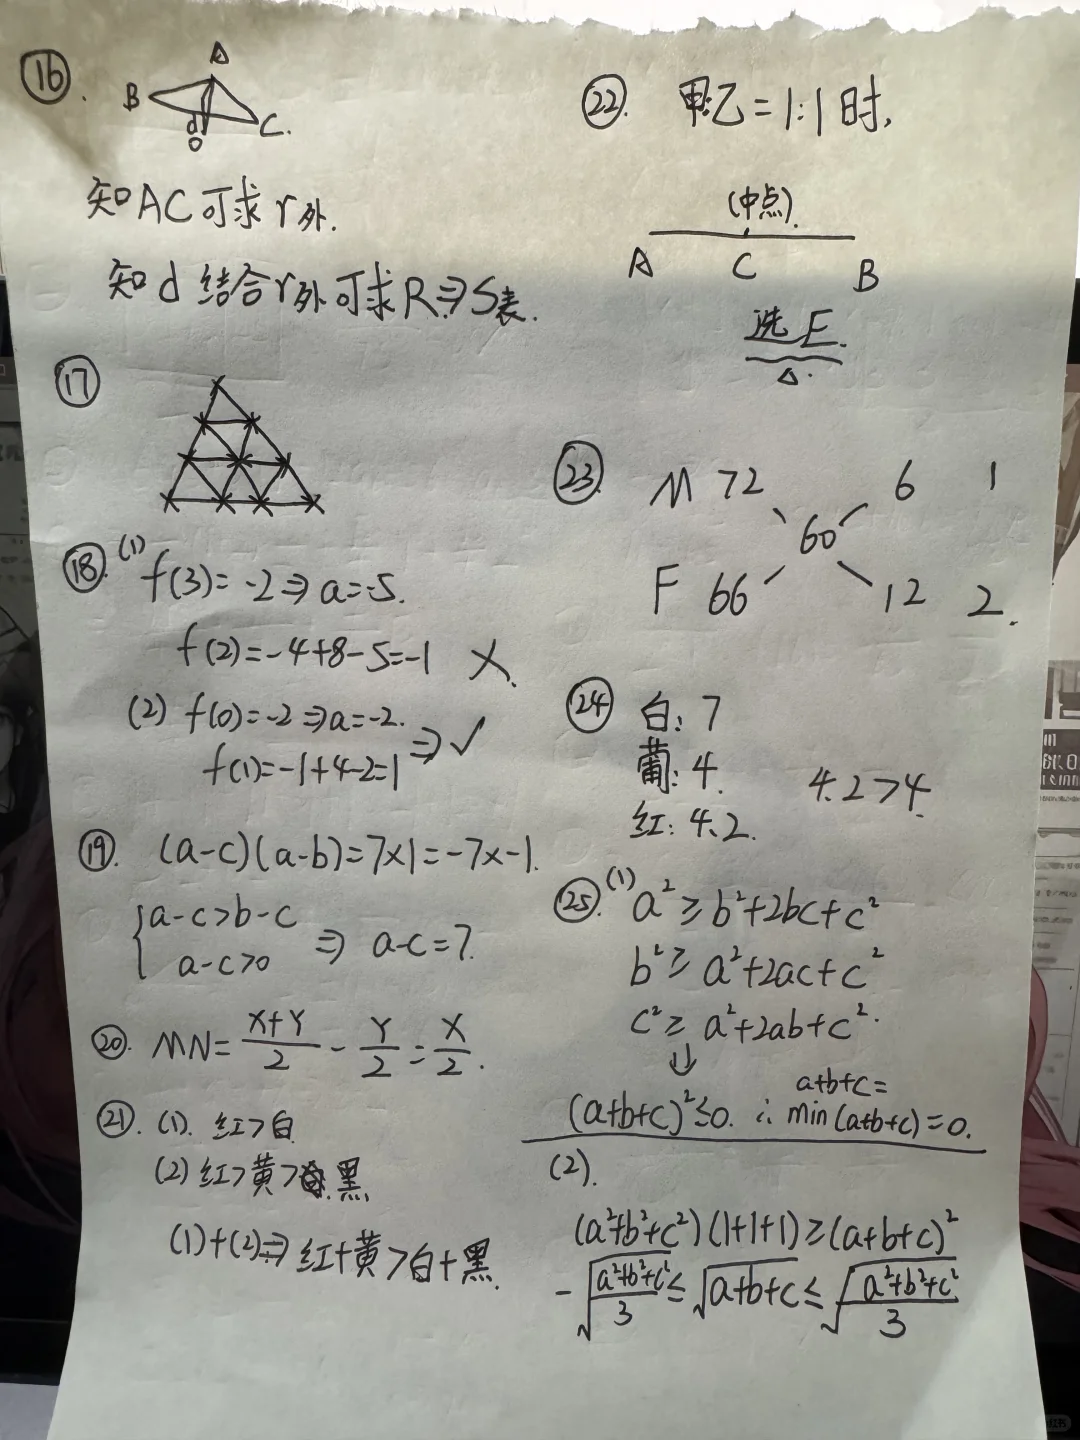 ⑯.
A
B
C.
d
O
知AC可求r外.
知d结合r外可求R⇒S表.
⑰
⑱. (1) f(3)=-2⇒a=-5.
f(2)=-4+8-5=-1 ×.
(2) f(0)=-2⇒a=-2.
f(1)=-1+4-2=1 ⇒√
⑲. (a-c)(a-b)=7×1=-7×-1.
{a-c>b-c
a-c>0 ⇒ a-c=7.
⑳. MN=(X+Y)/2-Y/2=X/2.
㉑. (1). 红>白
(2) 红>黄>黑
(1)+(2)⇒红+黄>白+黑.
㉒. 甲:乙=1:1时,
(中点).
A C B
选E.
㉓. M 72 6 1
60
F 66 12 2.
㉔ 白: 7
葡: 4.
红: 4.2. 4.2>4.
㉕. (1) a²≥b²+2bc+c²
b²≥a²+2ac+c²
c²≥a²+2ab+c².
⇓
a+b+c=
(a+b+c)²≤0. ∴ min(a+b+c)=0.
(2).
(a²+b²+c²)(1+1+1)≥(a+b+c)²
-√((a²+b²+c²)/3)≤√(a+b+c)≤√((a²+b²+c²)/3)